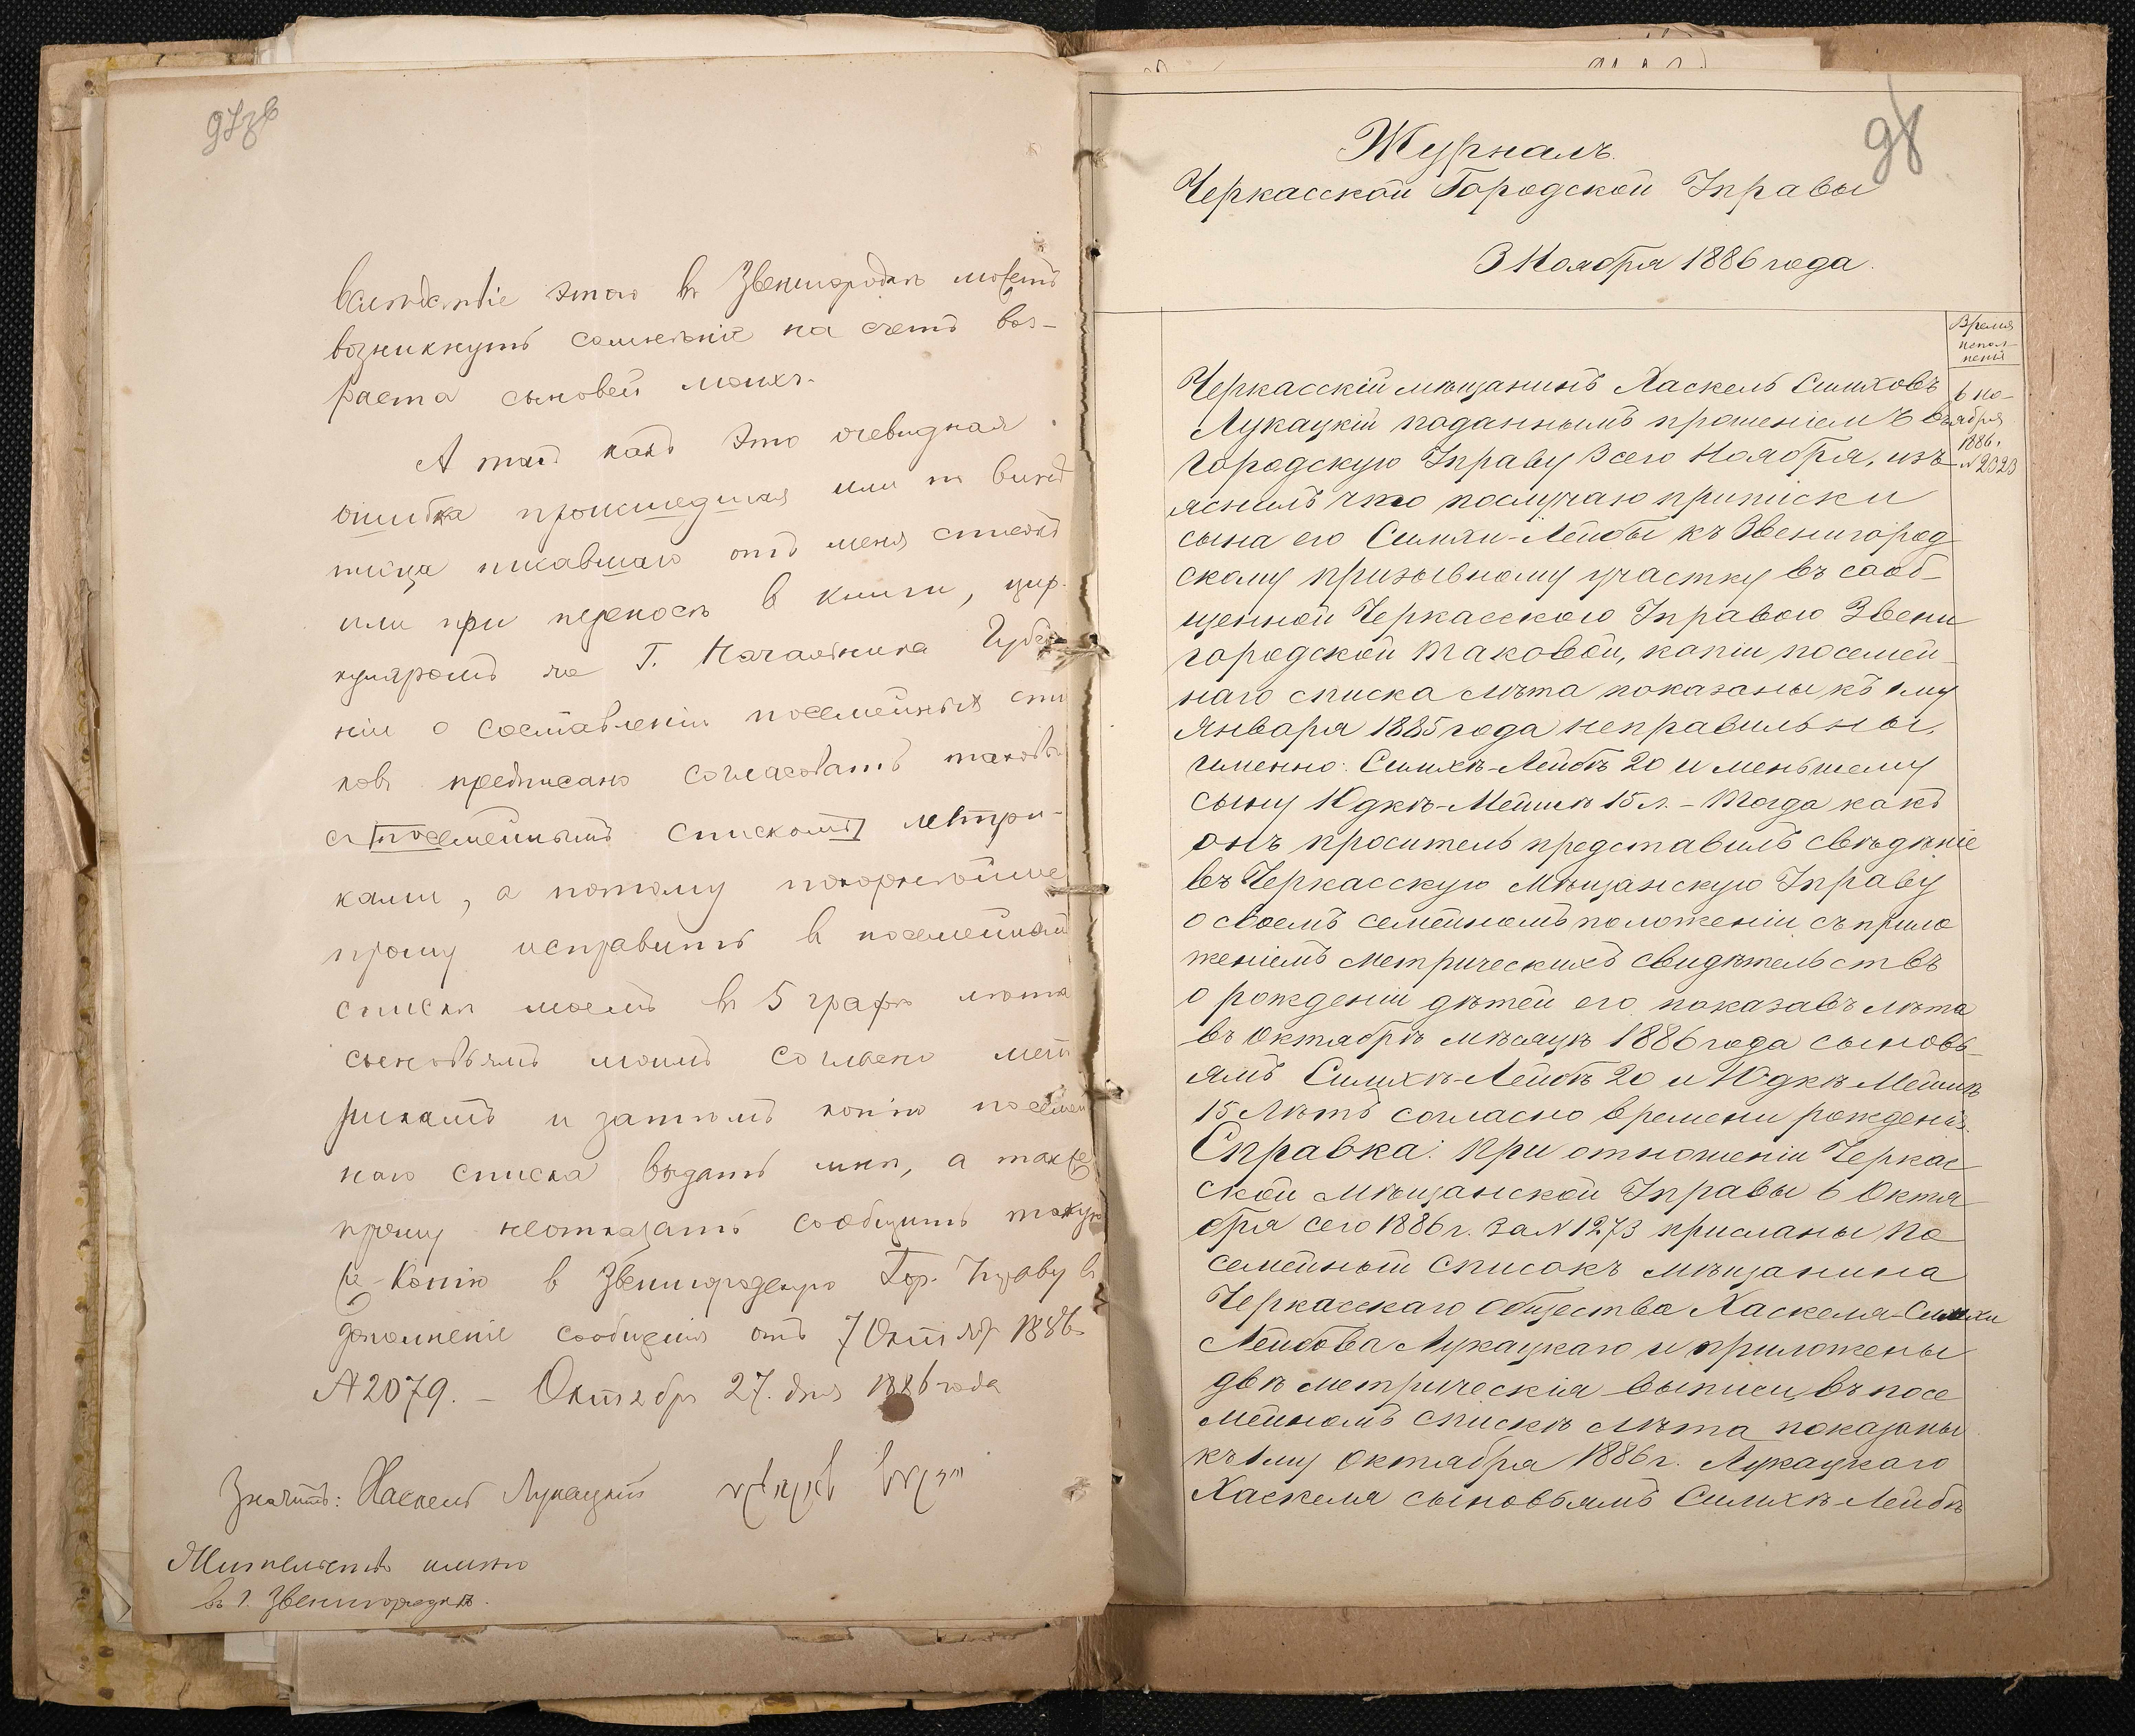 97зв
вслѣдствіе этого въ Звенигородкѣ можетъ
возникнуть сомнѣніе на счетъ воз-
раста сыновей моихъ.
А такъ какъ это очевидная
ошибка происшедшая или по винѣ
писца писавшаго отъ меня
или при переносѣ в книги, цир-
куляромъ же Г. Начальника Губер
ніи о составленіи посемейныхъ спи
ковъ предписано согласовать таковы
съ посемейнымъ спискомъ метри-
ками, а потому покорнѣйше
прошу исправить въ посемейномъ
списки моемъ въ 5 графѣ лѣта
сыновьямъ моимъ согласно мет
рикамъ и затѣмъ копію посемей
наго списка выдать мнѣ, а также
прошу неотказать сообщить такую
же Копію в Звенигородскую Гор. Управу в
дополненіе сообщенія отъ 7 Октябр 1886
№ 2079. – Октября 27. дня 1886 года
Значитъ: Хаскель Лукацкій
Жительство имѣю
въ г. Звенигородкѣ.
98
Журналъ
Черкасской Городской Управы
3 Ноября 1886 года.
Время
испол-
ненія
6 но-
ября
1886.
№ 2323
Черкасскій мѣщанинъ Хаскель Симховъ
Лукацкій поданнымъ прошеніемъ въ
Городскую Управу 3 сего Ноября, изъ-
яснилъ что послучаю приписки
сына его Симхи-Лейбы къ Звенигород
скому призывному участку въ сооб-
щенной Черкасского Управою Звени
городской таковой, копіи посемей-
наго списка лѣта показаны къ 1му
Января 1885 года неправильны,
именно: Симхѣ-Лейбѣ 20 и меньшему
сыну Юдкѣ-Мейшѣ 15 л. – Тогда какъ
онъ проситель представилъ свѣдѣніе
въ Черкасскую Мѣщанскую Управу
о своемъ семейномъ положеніи, съ прило
женіемъ метрическихъ свидѣтельствъ
о рожденіи дѣтей его показавъ лѣта
въ Октябрѣ мѣсяцѣ 1886 года сыновь-
ямъ Симхѣ-Лейбѣ 20 и Юдкѣ Мейшѣ
15 Лѣтъ согласно времени рожденія.
Справка: При отношеніи Черкас
ской мѣщанской Управы 6 Октя
бря сего 1886 г. за № 1273 присланы по
семейный списокъ мѣщанина
Черкасскаго Общества Хаскеля-Симхи
Лейбова Лукацкаго и приложены
двѣ метрическія выписи, въ посе
мейномъ спискѣ лѣта показаны
къ 1му Октября 1886 г. Лукацкаго
Хаскеля сыновьямъ Симхѣ-Лейбѣ